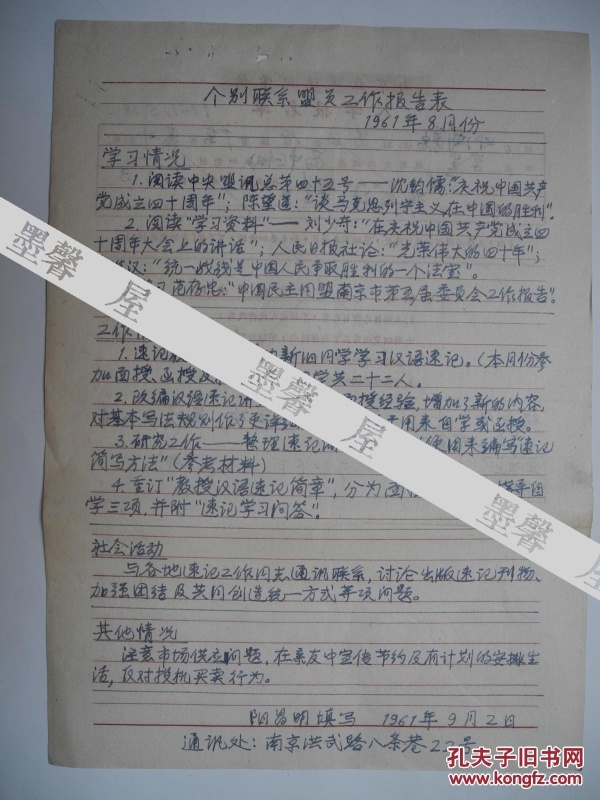 个别联系盟员工作报告表
1961年8月份
学习情况
1. 阅读中央盟讯总第四十五号——沈钧儒:"庆祝中国共产
党成立四十周年";陈望道:"谈马克思列宁主义在中国的胜利"。
2. 阅读"学习资料"——刘少奇:"在庆祝中国共产党成立四
十周年大会上的讲话";人民日报社论:"光荣伟大的四十年";
汉:"统一战线是中国人民争取胜利的一个法宝"。
习范存忠:"中国民主同盟南京市第五届委员会工作报告"。
工作
1. 速记 新旧同学学习汉语速记。(本月份参
加面授、函授及 学共二十二人。
2. 改编汉语速记讲 授经验,增加了新的内容,
对基本写法规则作了更详 用来自学或函授。
3. 研究工作——整理速记 使用来编写速记
简写方法"(参考材料)
4. 重订"教授汉语速记简章",分为函 辅导自
学三项,并附"速记学习问答"。
社会活动
与各地速记工作同志通讯联系,讨论出版速记刊物、
加强团结及共同创造统一方式等项问题。
其他情况
注意市场供应问题,在亲友中宣传节约及有计划的安排生
活,反对投机买卖行为。
阳昌明填写 1961年9月2日
通讯处:南京洪武路八条巷22号
墨馨 屋
墨馨 屋
墨馨 屋
孔夫子旧书网
www.kongfz.com